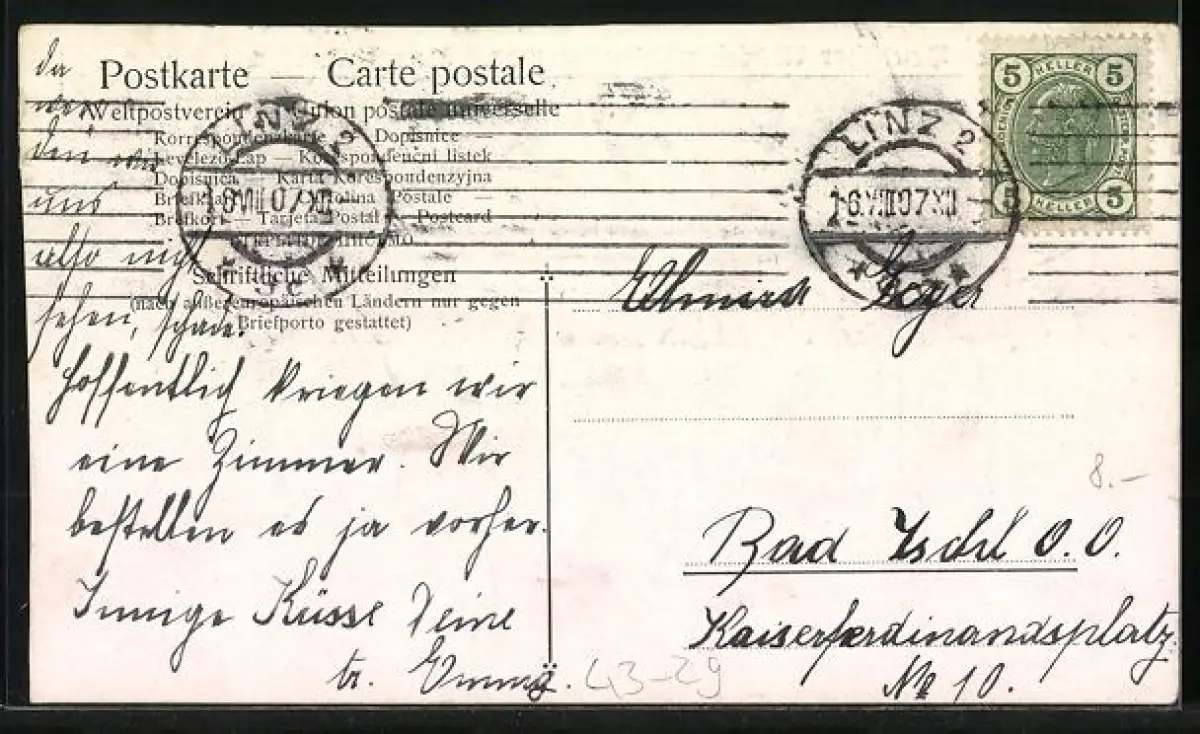 Postkarte — Carte postale
Weltpostverein — Union postale universelle
Korrespondenzkarte — Dopisnice —
Levelező-Lap — Korespondenční lístek
Dopisnica — Karta korespondenzyjna
Cartolina Postale —
Brefkort — Tarjeta Postal — Postcard
Schriftliche Mitteilungen
(nach außereuropäischen Ländern nur gegen
Briefporto gestattet)
da
uns
also nicht
sehen, schade.
Hoffentlich kriegen wir
eine Zimmer. Wir
bestellen es ja vorher.
Innige Küsse Deine
tr. Emmy.
LINZ 2
VIII 07 XII
5 HELLER 5
5 HELLER 5
Bad Ischl O.O.
Kaiserferdinandsplatz
No 10.
8.-
43-29